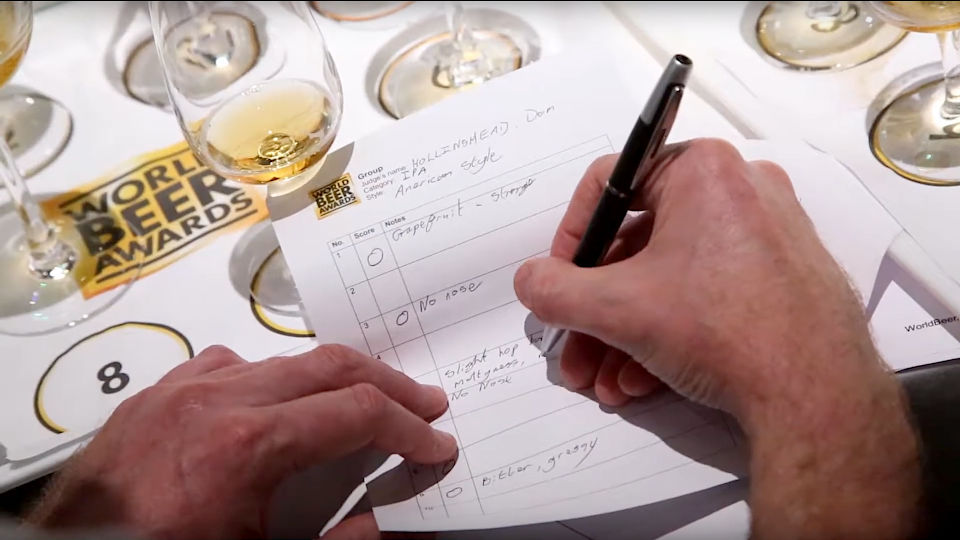 WORLD
BEER
AWARDS
8
WORLD
BEER
AWARDS
Group
Judge's name: HOLLINSHEAD, Dom
Category: IPA
Style: American Style
No. Score Notes
1 O Grapefruit - strong
2
3 O No nose
4
Slight hop
maltyness,
No Nose
O Bitter, grassy
WorldBeer